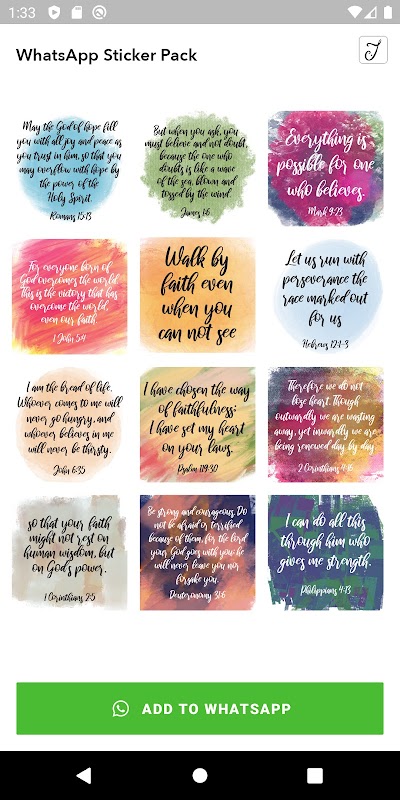 1:33
WhatsApp Sticker Pack
May the God of hope fill
you with all joy and peace as
you trust in him, so that you
may overflow with hope by
the power of the
Holy Spirit.
Romans 15:13
But when you ask, you
must believe and not doubt,
because the one who
doubts is like a wave
of the sea, blown and
tossed by the wind.
James 1:6
Everything is
possible for one
who believes.
Mark 9:23
For everyone born of
God overcomes the world.
This is the victory that has
overcome the world,
even our faith.
1 John 5:4
Walk by
faith even
when you
can not see
Let us run with
perseverance the
race marked out
for us
Hebrews 12:1-3
I am the bread of life.
Whoever comes to me will
never go hungry, and
whoever believes in me
will never be thirsty.
John 6:35
I have chosen the way
of faithfulness;
I have set my heart
on your laws.
Psalm 119:30
Therefore we do not
lose heart. Though
outwardly we are wasting
away, yet inwardly we are
being renewed day by day.
2 Corinthians 4:16
so that your faith
might not rest on
human wisdom, but
on God's power.
1 Corinthians 2:5
Be strong and courageous. Do
not be afraid or terrified
because of them, for the lord
your God goes with you; he
will never leave you nor
forsake you.
Deuteronomy 31:6
I can do all this
through him who
gives me strength.
Philippians 4:13
ADD TO WHATSAPP